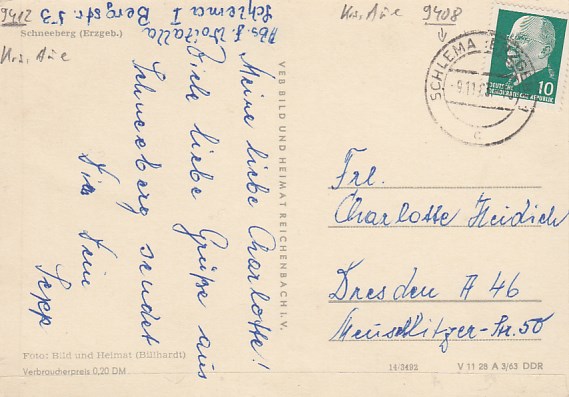 9412
Krs. Aue
Schneeberg (Erzgeb.)
Abs. J. Woitalla
Schlema I
Bergstr. 53
Krs. Aue
9408
SCHLEMA (ERZGEB
-9.11.63
c
DEUTSCHE
DEMOKRATISCHE
10
Meine liebe Charlotte!
Viele liebe Grüße aus
Schneeberg sendet
Dir Dein
Sepp
VEB BILD UND HEIMAT REICHENBACH I. V.
Frl.
Charlotte Heidich
Dresden A 46
Meuselitzer-Str. 50
Foto: Bild und Heimat (Billhardt)
Verbraucherpreis 0,20 DM
14/3492
V 11 28 A 3/63 DDR